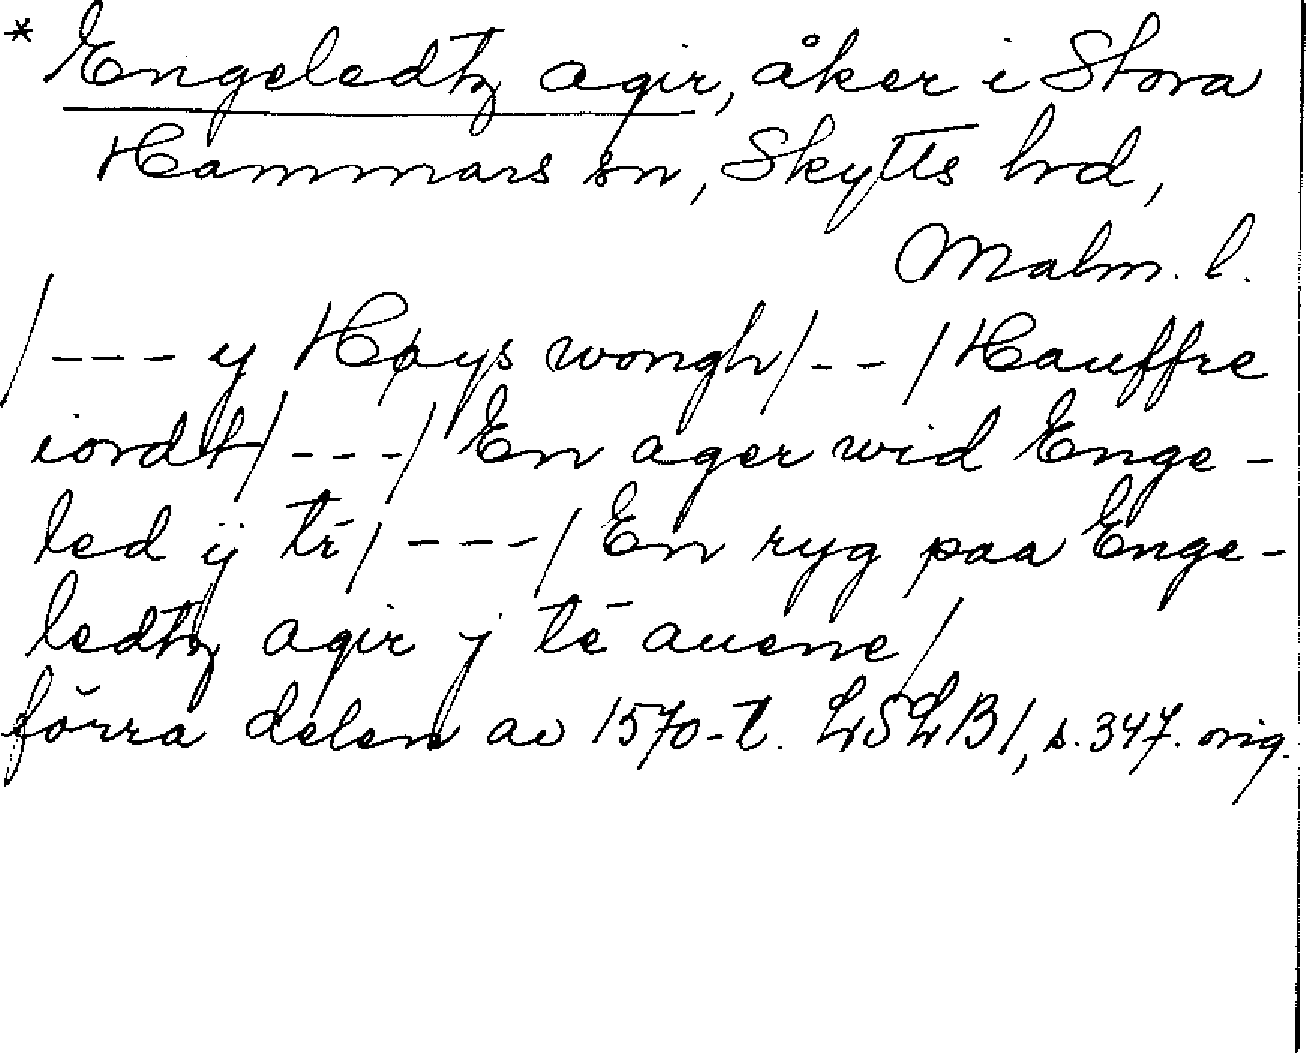 * Engeledtz agir, åker i Stora
Hammars sn, Skytts hd,
Malm. l.
/--- y Høys wongh/--/Hauffre
iordt/---/En ager wid Enge-
led ij tr̄/---/En ryg paa Enge-
ledtz agir j tē auene/
förra delen av 1570-t. LSLB1, s. 347. orig.